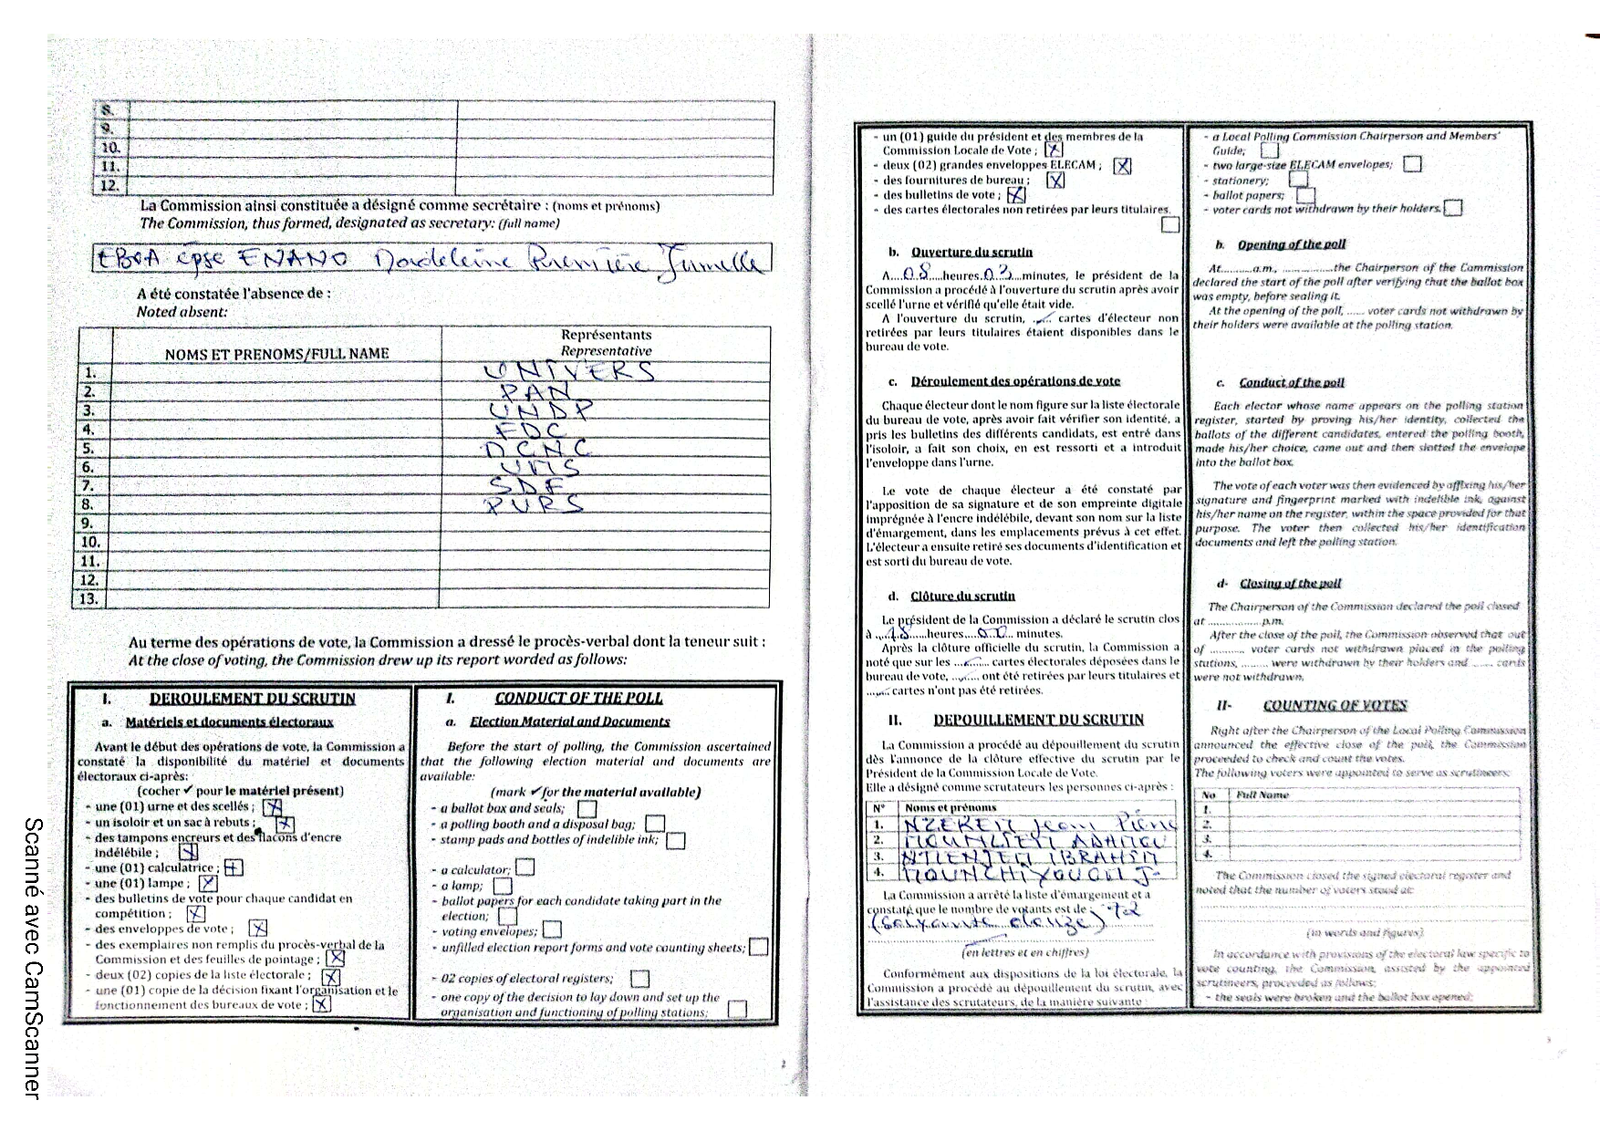 8.
9.
10.
11.
12.
La Commission ainsi constituée a désigné comme secrétaire : (noms et prénoms)
The Commission, thus formed, designated as secretary: (full name)
épse ENANO Première
A été constatée l'absence de :
Noted absent:
NOMS ET PRENOMS/FULL NAME
Représentants
Representative
1. UNIVERS
2. PAN
3. UNDP
4. FDC
5. DCNC
6. UMS
7. SDF
8. PURS
9.
10.
11.
12.
13.
Au terme des opérations de vote, la Commission a dressé le procès-verbal dont la teneur suit :
At the close of voting, the Commission drew up its report worded as follows:
I. DEROULEMENT DU SCRUTIN
a. Matériels et documents électoraux
Avant le début des opérations de vote, la Commission a
constaté la disponibilité du matériel et documents
électoraux ci-après:
(cocher ✓ pour le matériel présent)
- une (01) urne et des scellés ;
- un isoloir et un sac à rebuts ;
- des tampons encreurs et des flacons d'encre
indélébile ;
- une (01) calculatrice ;
- une (01) lampe ;
- des bulletins de vote pour chaque candidat en
compétition ;
- des enveloppes de vote ;
- des exemplaires non remplis du procès-verbal de la
Commission et des feuilles de pointage ;
- deux (02) copies de la liste électorale ;
- une (01) copie de la décision fixant l'organisation et le
fonctionnement des bureaux de vote ;
I. CONDUCT OF THE POLL
a. Election Material and Documents
Before the start of polling, the Commission ascertained
that the following election material and documents are
available:
(mark ✓ for the material available)
- a ballot box and seals;
- a polling booth and a disposal bag;
- stamp pads and bottles of indelible ink;
- a calculator;
- a lamp;
- ballot papers for each candidate taking part in the
election;
- voting envelopes;
- unfilled election report forms and vote counting sheets;
- 02 copies of electoral registers;
- one copy of the decision to lay down and set up the
organisation and functioning of polling stations;
- un (01) guide du président et des membres de la
Commission Locale de Vote ;
- deux (02) grandes enveloppes ELECAM ;
- des fournitures de bureau ;
- des bulletins de vote ;
- des cartes électorales non retirées par leurs titulaires.
b. Ouverture du scrutin
A....08...heures.03...minutes, le président de la
Commission a procédé à l'ouverture du scrutin après avoir
scellé l'urne et vérifié qu'elle était vide.
A l'ouverture du scrutin, ...... cartes d'électeur non
retirées par leurs titulaires étaient disponibles dans le
bureau de vote.
c. Déroulement des opérations de vote
Chaque électeur dont le nom figure sur la liste électorale
du bureau de vote, après avoir fait vérifier son identité, a
pris les bulletins des différents candidats, est entré dans
l'isoloir, a fait son choix, en est ressorti et a introduit
l'enveloppe dans l'urne.
Le vote de chaque électeur a été constaté par
l'apposition de sa signature et de son empreinte digitale
imprégnée à l'encre indélébile, devant son nom sur la liste
d'émargement, dans les emplacements prévus à cet effet.
L'électeur a ensuite retiré ses documents d'identification et
est sorti du bureau de vote.
d. Clôture du scrutin
Le président de la Commission a déclaré le scrutin clos
à ...18....heures....00... minutes.
Après la clôture officielle du scrutin, la Commission a
noté que sur les ........ cartes électorales déposées dans le
bureau de vote, ...... ont été retirées par leurs titulaires et
...... cartes n'ont pas été retirées.
II. DEPOUILLEMENT DU SCRUTIN
La Commission a procédé au dépouillement du scrutin
dès l'annonce de la clôture effective du scrutin par le
Président de la Commission Locale de Vote.
Elle a désigné comme scrutateurs les personnes ci-après :
N° Noms et prénoms
1. Jean Pierre
2.
3. IBRAHIM
4.
La Commission a arrêté la liste d'émargement et a
constaté que le nombre de votants est de : 72
(Soixante douze)
(en lettres et en chiffres)
Conformément aux dispositions de la loi électorale, la
Commission a procédé au dépouillement du scrutin, avec
l'assistance des scrutateurs, de la manière suivante :
- a Local Polling Commission Chairperson and Members'
Guide;
- two large-size ELECAM envelopes;
- stationery;
- ballot papers;
- voter cards not withdrawn by their holders.
b. Opening of the poll
At...........a.m, ................the Chairperson of the Commission
declared the start of the poll after verifying that the ballot box
was empty, before sealing it.
At the opening of the poll, ...... voter cards not withdrawn by
their holders were available at the polling station.
c. Conduct of the poll
Each elector whose name appears on the polling station
register, started by proving his/her identity, collected the
ballots of the different candidates, entered the polling booth,
made his/her choice, came out and then slotted the envelope
into the ballot box.
The vote of each voter was then evidenced by affixing his/her
signature and fingerprint marked with indelible ink, against
his/her name on the register, within the space provided for that
purpose. The voter then collected his/her identification
documents and left the polling station.
d- Closing of the poll
The Chairperson of the Commission declared the poll closed
at ................ p.m.
After the close of the poll, the Commission observed that out
of ........... voter cards not withdrawn placed in the polling
stations, ......... were withdrawn by their holders and ...... cards
were not withdrawn.
II- COUNTING OF VOTES
Right after the Chairperson of the Local Polling Commission
announced the effective close of the poll, the Commission
proceeded to check and count the votes.
The following voters were appointed to serve as scrutineers:
No Full Name
1.
2.
3.
4.
The Commission closed the signed electoral register and
noted that the number of voters stood at:
(in words and figures).
In accordance with provisions of the electoral law specific to
vote counting, the Commission, assisted by the appointed
scrutineers, proceeded as follows:
- the seals were broken and the ballot box opened;
Scanné avec CamScanner